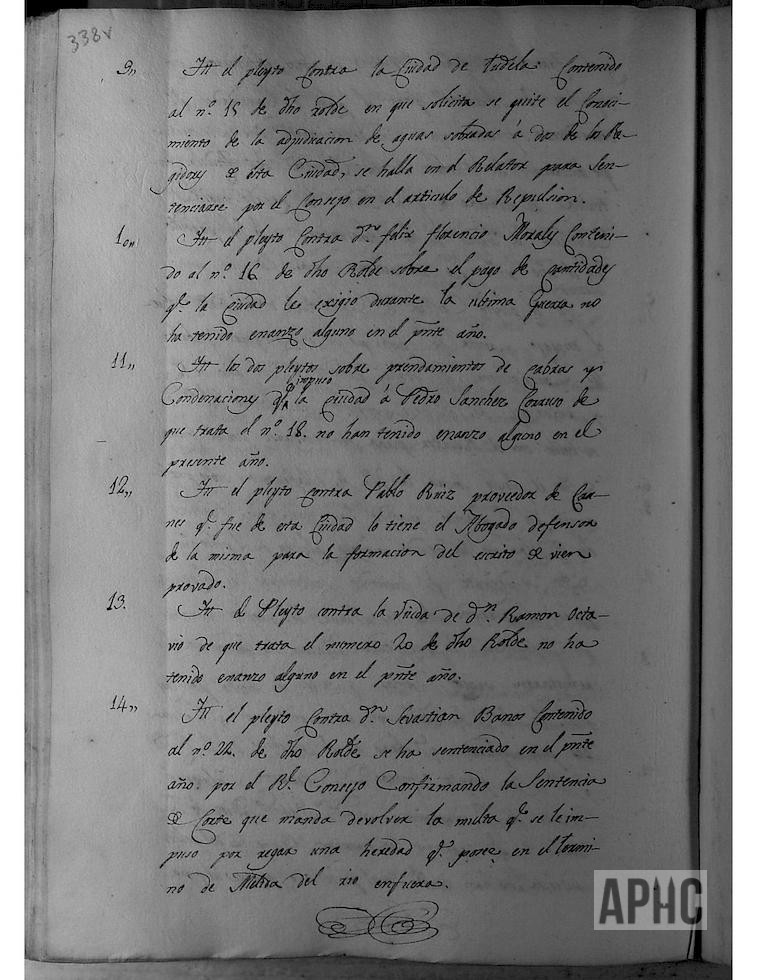 338v
9,, Itt el pleyto Contra la Ciudad de tudela Contenido
al n.º 15 de dho rolde en que solicita se quite el Conoci-
miento de la adjudicacion de aguas sobradas à dos de los Re-
gidores de esta Ciudad, se halla en el Relator para Sen-
tenciarse por el Consejo en el articulo de Repulsion.
10,, Itt el pleyto Contra d.n felix florencio Morales Conteni-
do al n.º 16 de dho Rolde sobre el pago de cantidades
q.e la Ciudad le exigio durante la ultima Guerra no
ha tenido enanzo alguno en el pnte año.
11,, Itt los dos pleytos sobre prendamientos de cabras y
Condenaciones q.e impuso la Ciudad à Pedro Sanchez de
que trata el n.º 18. no han tenido enanzo alguno en el
presente año.
12,, Itt el pleyto contra Pablo Ruiz proveedor de Car-
nes q.e fue de esta Ciudad lo tiene el Abogado defensor
de la misma para la formacion del escrito de vien
provado.
13. Itt el Pleyto contra la viuda de d.n Ramon Octa-
vio de que trata el numero 20 de dho Rolde no ha
tenido enanzo alguno en el pnte año.
14,, Itt el pleyto Contra d.n Sevastian Banos Contenido
al n.º 22. de dho Rolde se ha sentenciado en el pnte
año. por el R.l Consejo Confirmando la Sentencia
de Corte que manda devolver la multa q.e se le im-
puso por regar una heredad q.e posee en el termi-
no de del rio enfuera.
APHC